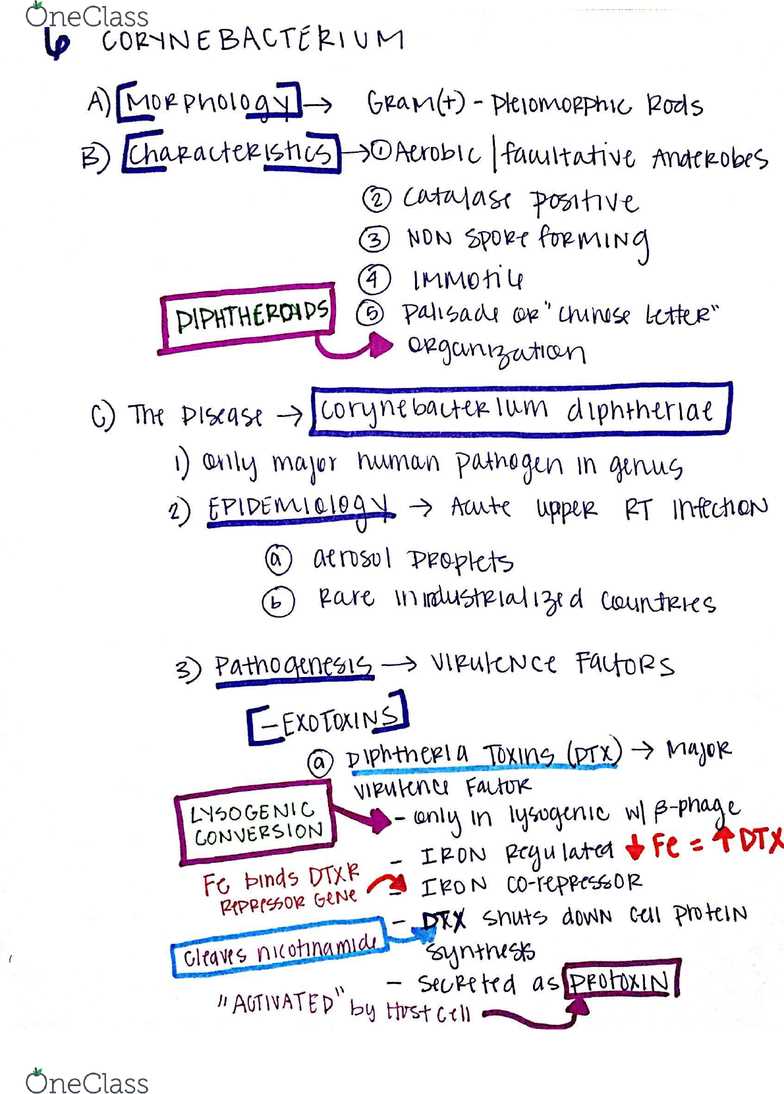 OneClass
6 CORYNEBACTERIUM
A) [Morphology] → GRAM(+) - Pleiomorphic Rods
B) Characteristics → ① Aerobic | facultative Anaerobes
② Catalase positive
③ NON spore forming
④ Immotile
DIPHTHEROIDS ⑤ Palisade or "Chinese Letter"
organization
C) The Disease → Corynebacterium diphtheriae
1) only major human pathogen in genus
2) EPIDEMIOLOGY → Acute upper RT Infection
ⓐ aerosol droplets
ⓑ Rare in industrialized countries
3) Pathogenesis → Virulence Factors
[-EXOTOXINS]
ⓐ Diphtheria Toxins (DTX) → Major
virulence Factor
LYSOGENIC CONVERSION - only in lysogenic w/ β-phage
- IRON Regulated ↓ Fe = ↑ DTX
Fe binds DTXR REPRESSOR GENE - IRON CO-repressor
- DTX shuts down cell protein
cleaves nicotinamide synthesis
- secreted as PROTOXIN
"ACTIVATED" by Host Cell
OneClass